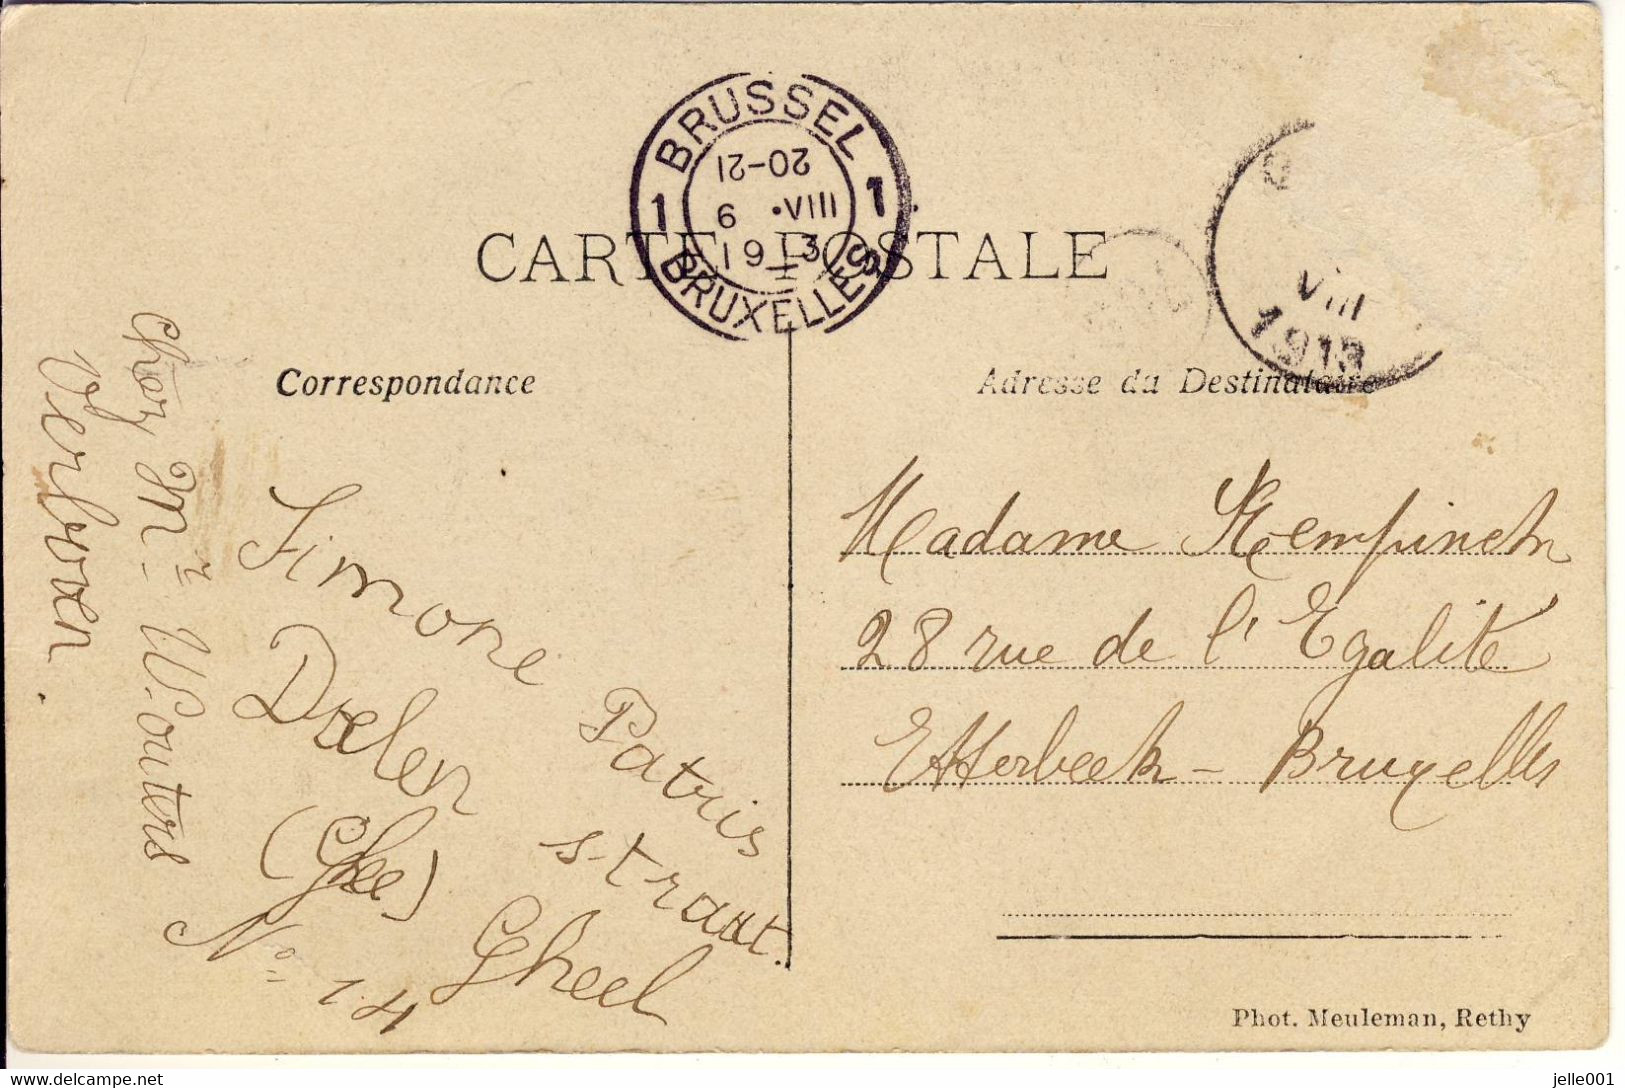 BRUSSEL
1 1
20-21
6 ·VIII
1913
BRUXELLES
VIII
1913
CARTE POSTALE
Correspondance
Adresse du Destinataire
Chez Mr Wouters
Verboven.
Simone
Daelen
(Ghee)
No 14
Patris
straat.
Gheel
Madame
28 rue de l'Egalité
Etterbeek - Bruxelles
Phot. Meuleman, Rethy
jelle001